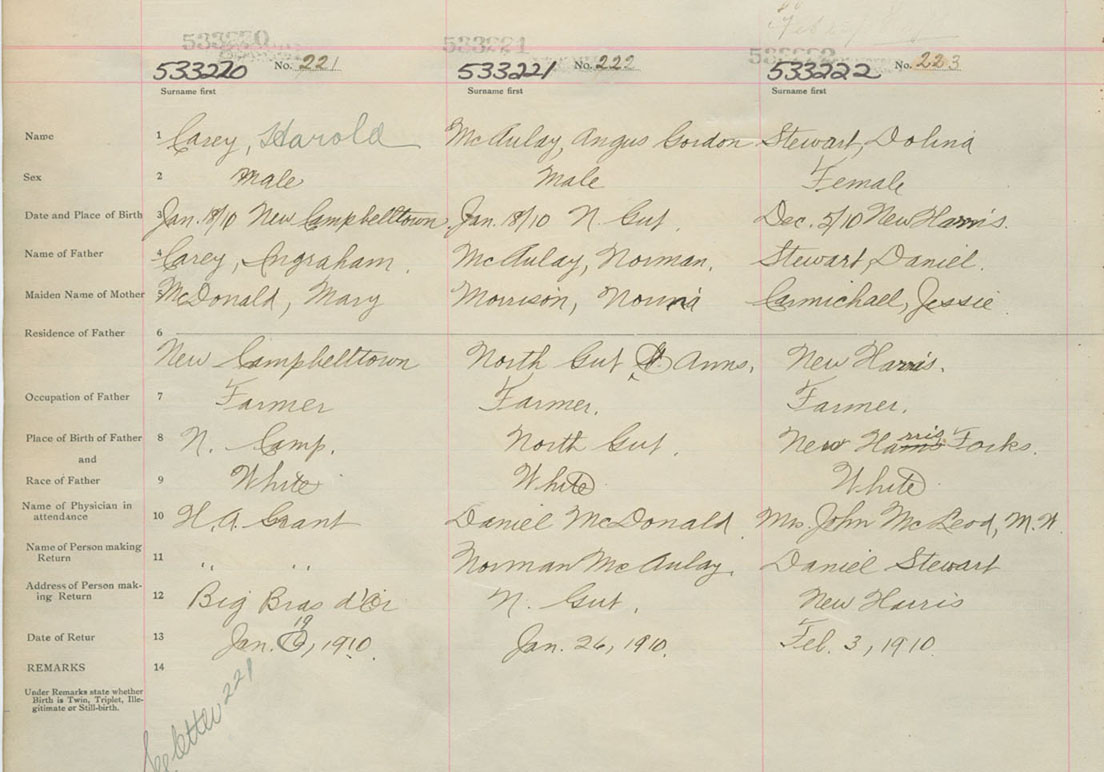 533220 No. 221 533221 No. 222 533222 No. 223
Surname first Surname first Surname first
Name 1 Carey, Harold McAulay, Angus Gordon Stewart, Dolina
Sex 2 Male Male Female
Date and Place of Birth 3 Jan. 18/10 New Campbelltown Jan. 18/10 N. Gut. Dec. 5/10 New Harris.
Name of Father 4 Carey, Ingraham. McAulay, Norman. Stewart, Daniel.
Maiden Name of Mother 5 McDonald, Mary Morrison, Carmichael, Jessie
Residence of Father 6
New Campbelltown North Gut St. Anns. New Harris.
Occupation of Father 7 Farmer Farmer. Farmer.
Place of Birth of Father 8 N. Camp. North Gut. New Harris Forks.
and
Race of Father 9 White White White
Name of Physician in
attendance 10 H. A. Grant Daniel McDonald Mrs. John McLeod, M. W
Name of Person making
Return 11 " " Norman McAulay. Daniel Stewart
Address of Person mak-
ing Return 12 Big Bras d'Or N. Gut. New Harris
Date of Retur 13 Jan. 19, 1910. Jan. 26, 1910. Feb. 3, 1910.
REMARKS 14
Under Remarks state whether
Birth is Twin, Triplet, Ille-
gitimate or Still-birth.
See letter 221